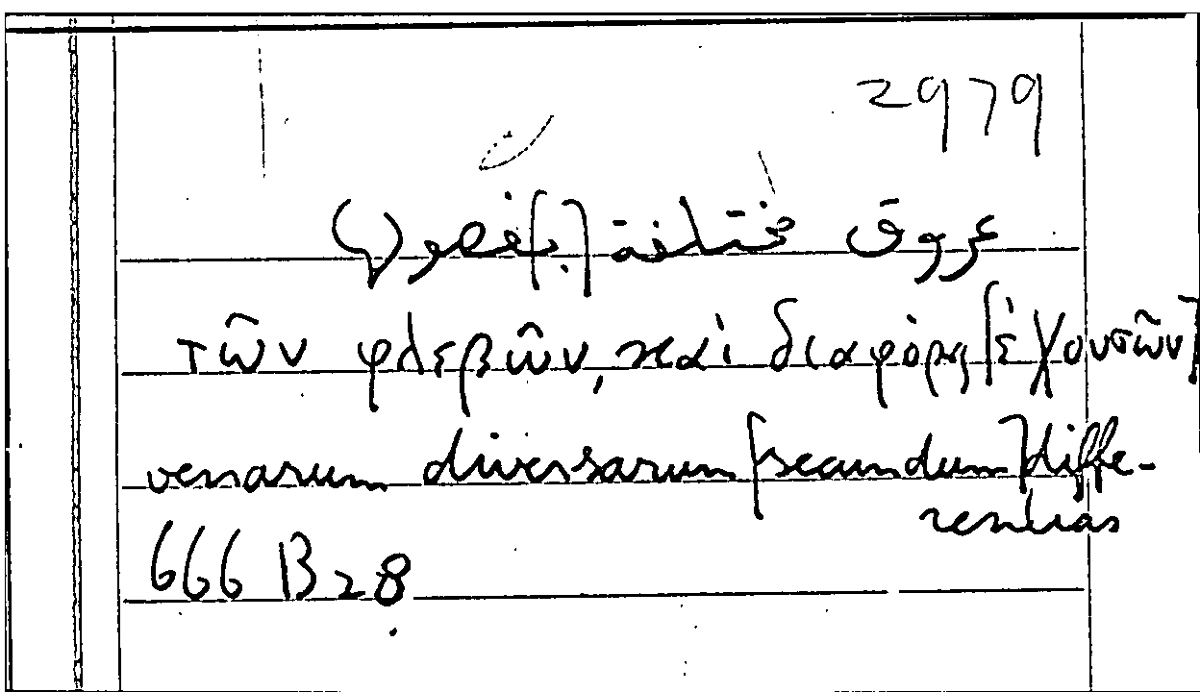 2979
عروق مختلفة [بـ]فصولها
τῶν φλεβῶν, καὶ διαφόρας [ἐχουσῶν]
venarum diversarum [secundum] diffe-
rentias
666 B 28